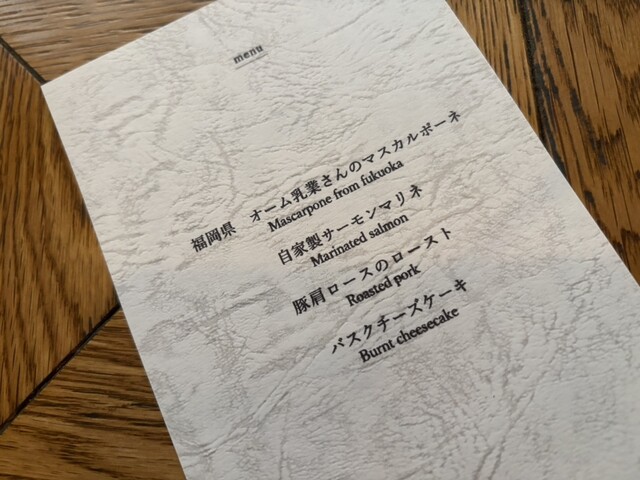 menu
福岡県　オーム乳業さんのマスカルポーネ
Mascarpone from fukuoka
自家製サーモンマリネ
Marinated salmon
豚肩ロースのロースト
Roasted pork
バスクチーズケーキ
Burnt cheesecake